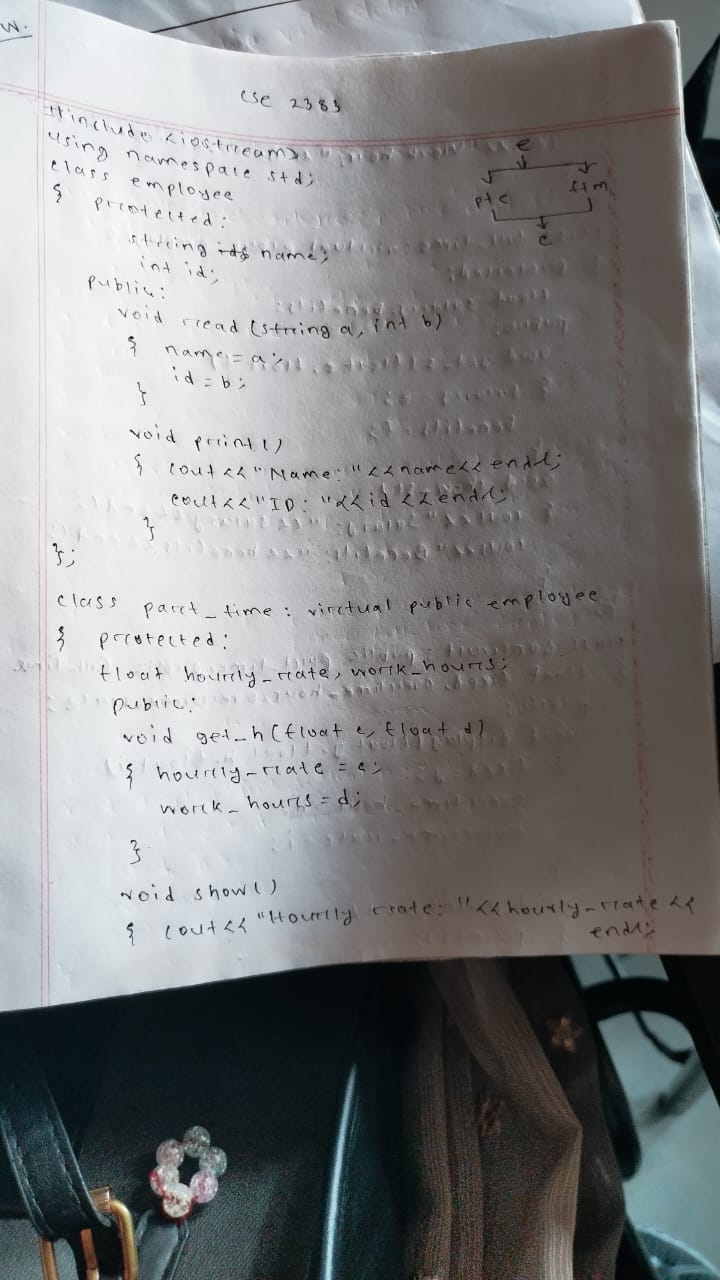 W.
CSE 2383
#include <iostream>
using namespace std;
class employee
{ protected:
string name;
int id;
public:
void read (string a, int b)
{ name = a;
id = b;
}
void print()
{ cout << "Name: " << name << endl;
cout << "ID: " << id << endl;
}
};
class part_time : virtual public employee
{ protected:
float hourly_rate, work_hours;
public:
void get_h(float c, float d)
{ hourly_rate = c;
work_hours = d;
}
void show()
{ cout << "Hourly rate: " << hourly_rate <<
endl;
e
ptc ftm
c